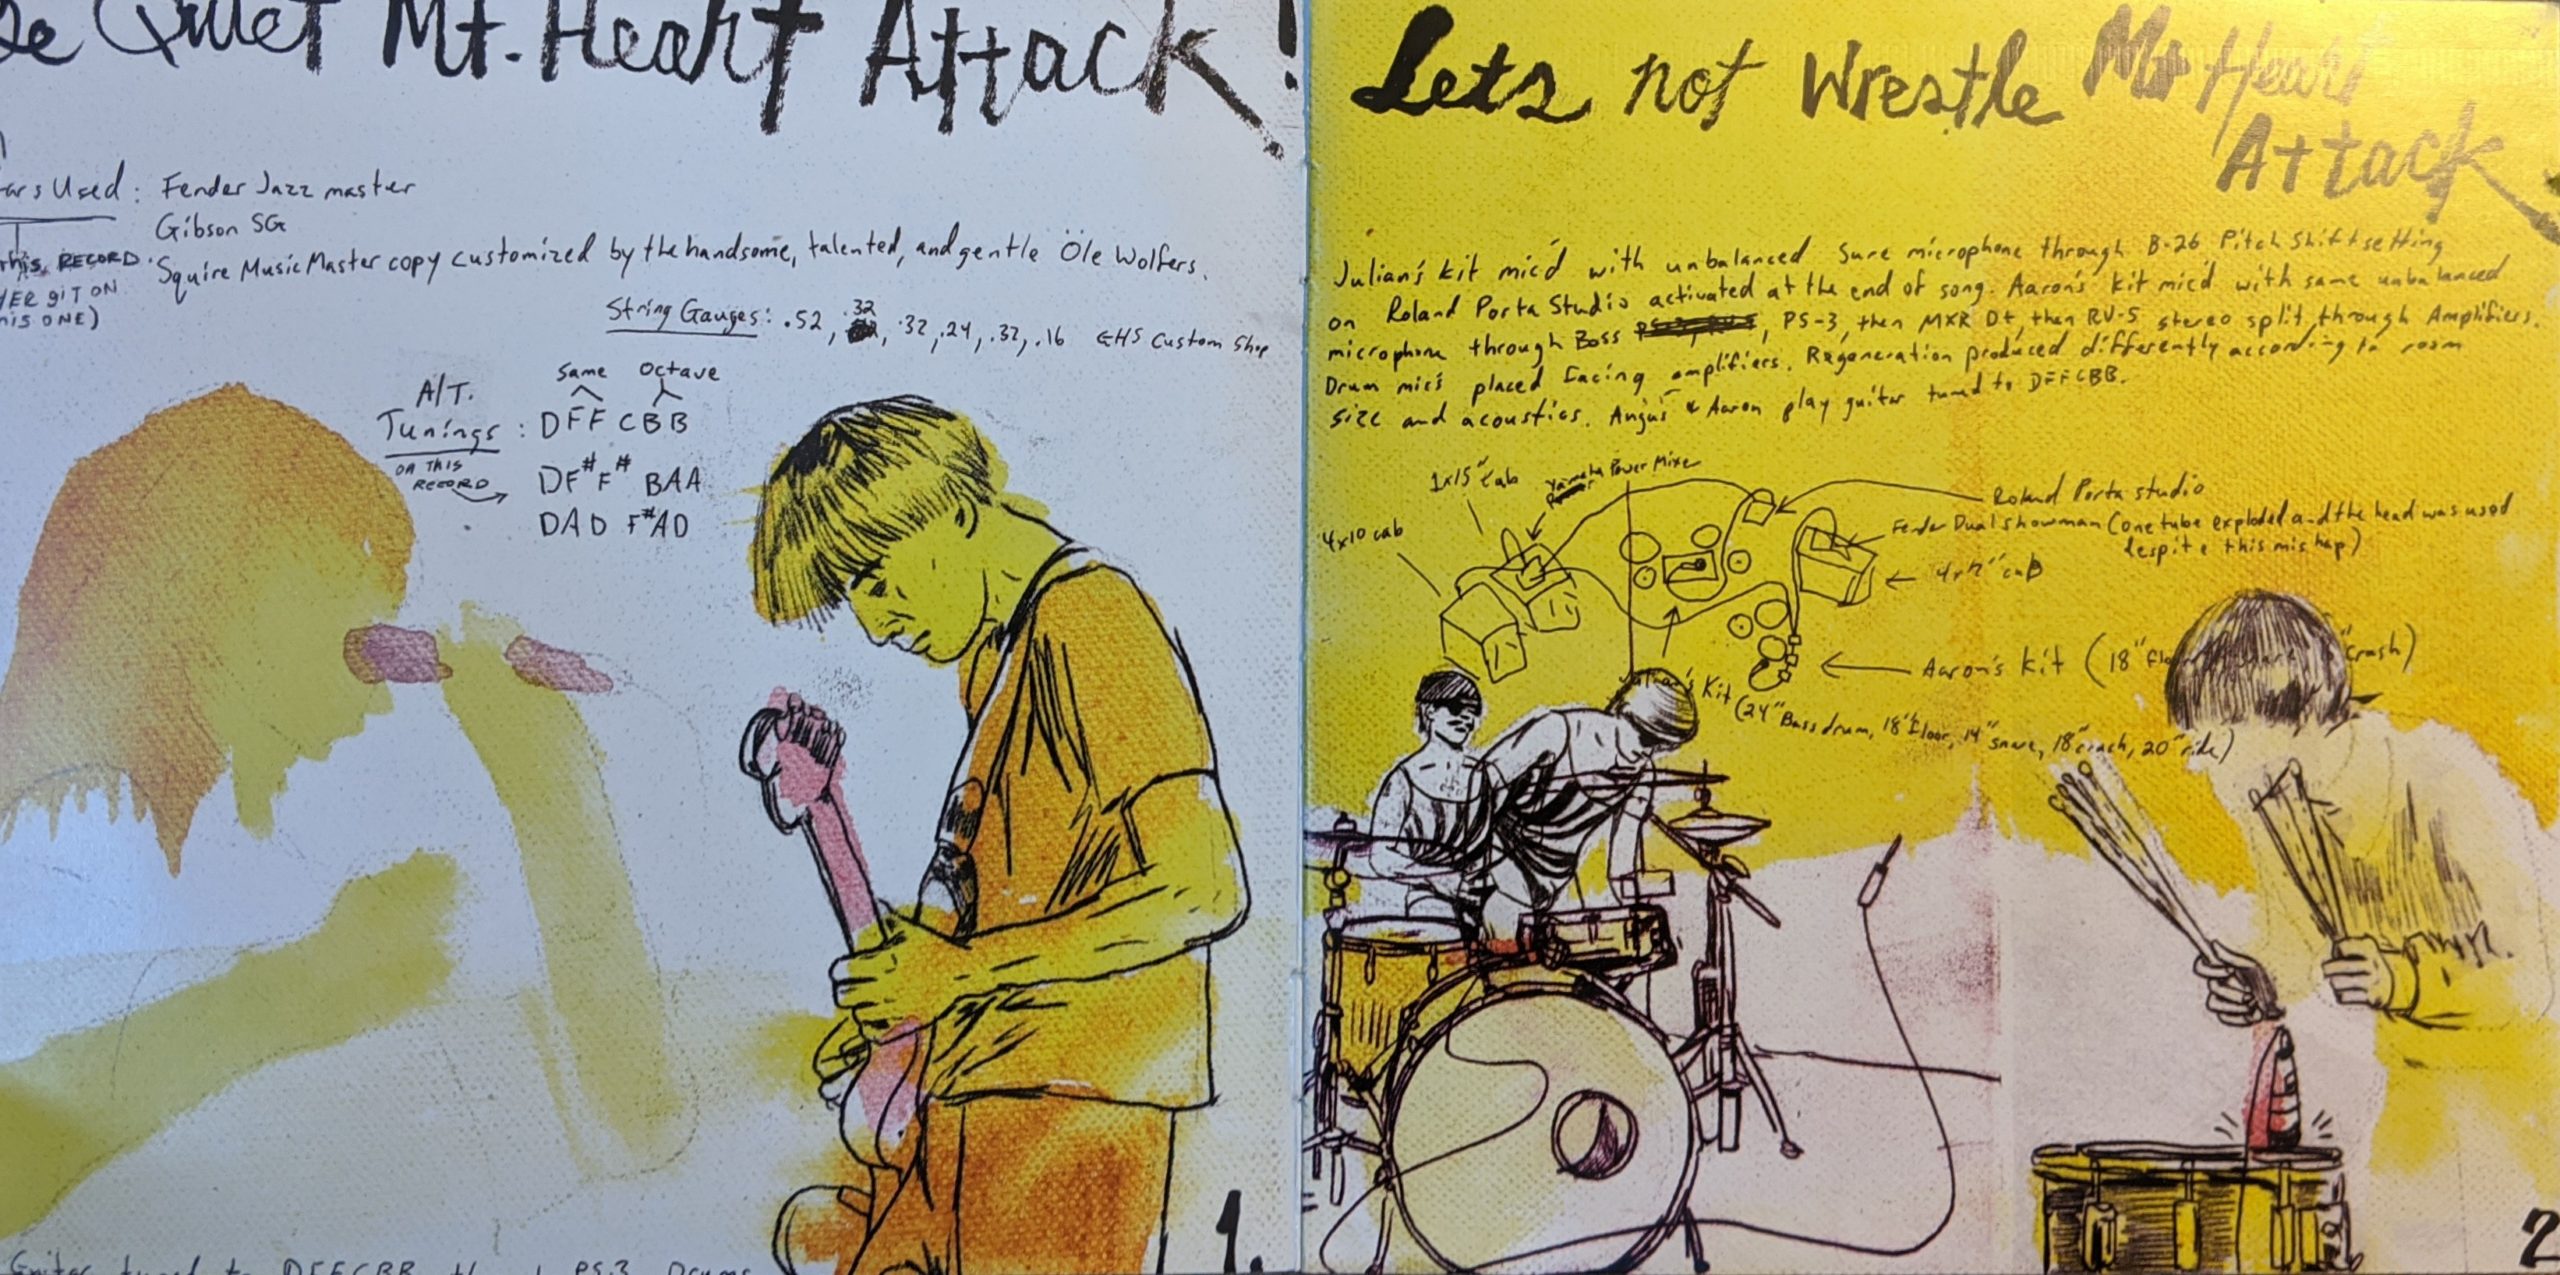 Be Quiet Mt. Heart Attack!
ars Used: Fender Jazz master
Gibson SG
this RECORD.
Squire MusicMaster copy customized by the handsome, talented, and gentle Öle Wolfers.
git ON
his ONE)
String Gauges: .52, .32, .32, .24, .32, .16 GHS Custom Shop
A/T.
Tunings:
on this
RECORD
Same Octave
DFF CBB
DF#F# BAA
DAD F#AD
Guitar tuned to DFFCBB
PS-3 Drums
1.
Lets not Wrestle Mt Heart
Attack
Julian's kit mic'd with unbalanced Sure microphone through B-26 Pitch Shift setting
on Roland Porta Studio activated at the end of song. Aaron's kit mic'd with same unbalanced
microphone through Boss PS-3, then MXR then RV-5 stereo split, through Amplifiers.
Drum mic's placed facing amplifiers. Regeneration produced differently according to room
size and acoustics. Angus & Aaron play guitar tuned to DFFCBB.
1x15" cab
Yamaha Power Mixer
4x10 cab
Roland Porta studio
Fender Dual showman (one tube exploded and the head was used
despite this mishap)
cab
Aaron's kit (18" crash)
Julian's Kit (24" Bass drum, 18" floor, 14" snare, 18" crash, 20" ride)
2